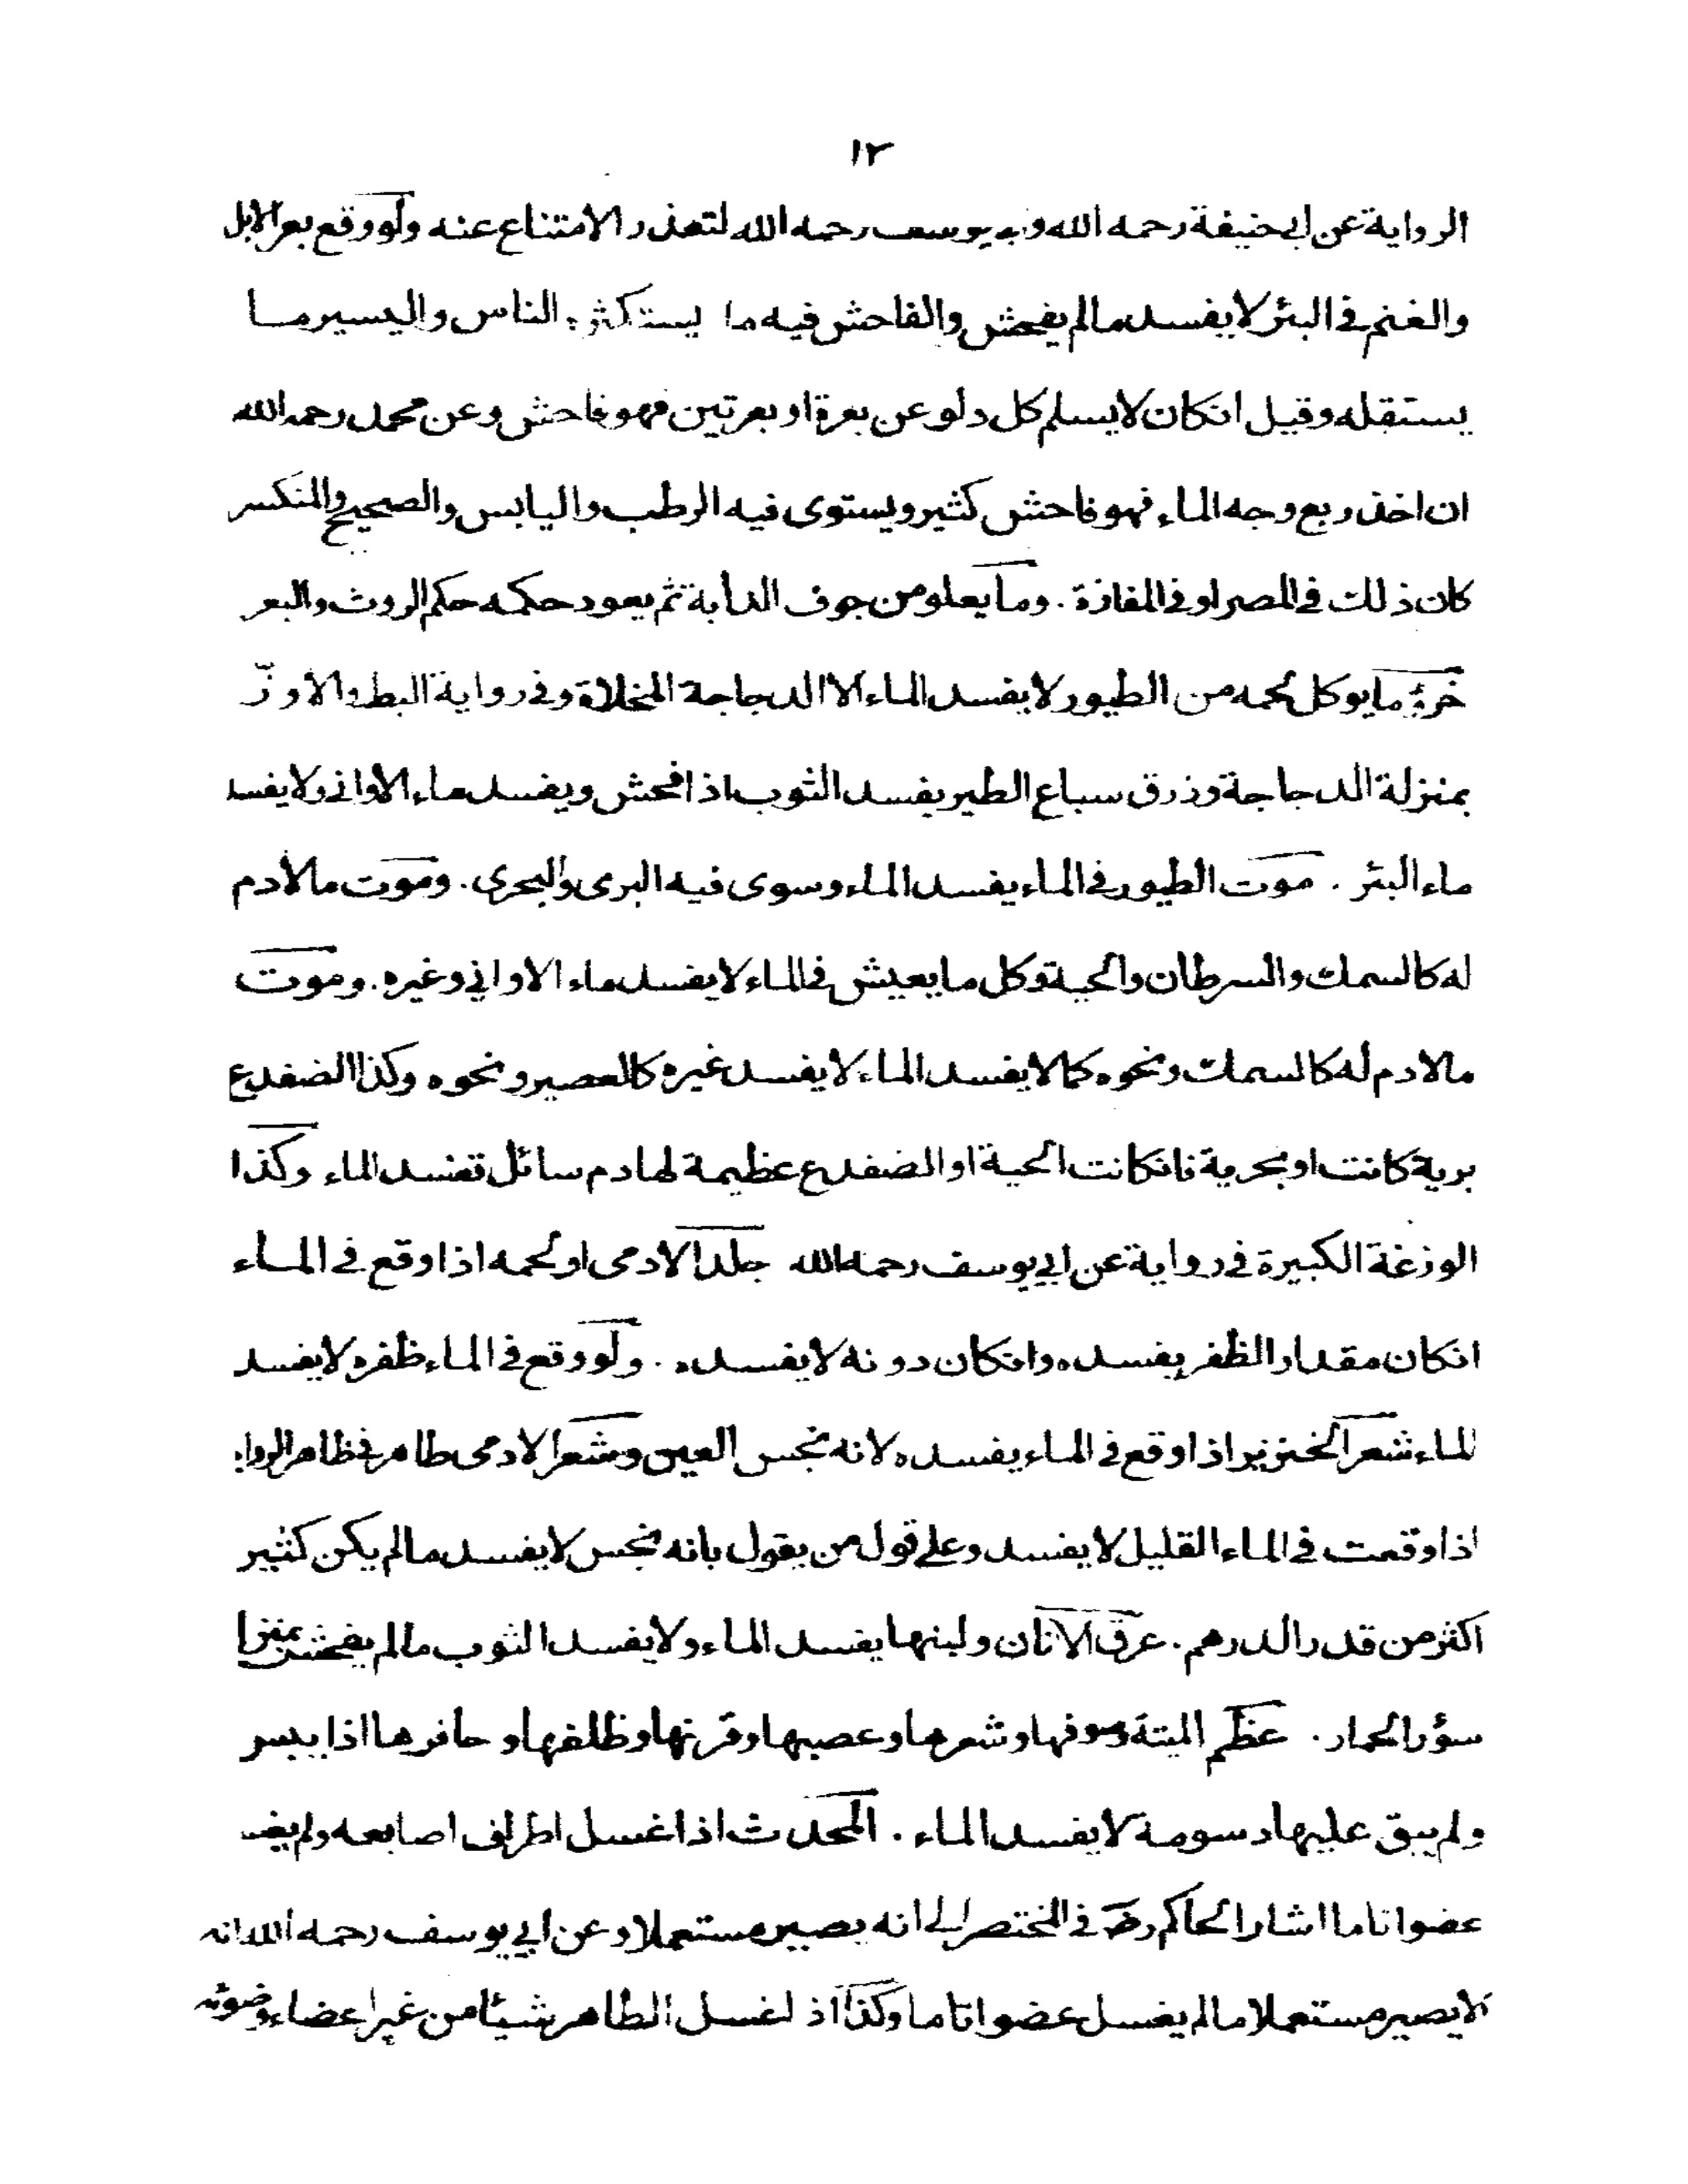 ١٢
الرواية عن ابى حنيفة رحمه الله وابى يوسف رحمه الله لتعذر الامتناع عنه ولو وقع بعر الابل
والغنم فى البئر لا يفسد مالم يفحش والفاحش فيه ما يستكثره الناس واليسير مـا
يستقله وقيل انكان لا يسلم كل دلو عن بعرة او بعرتين فهو فاحش وعن محمد رحمه الله
ان اخذ ربع وجه الماء فهو فاحش كثير ويستوى فيه الرطب واليابس والصحيح والمنكسر
كان ذلك فى المصر او فى المفازة . وما يعلو من جوف الدابة ثم يعود حكمه حكم الروث والبعر
خرؤ ما يوكل لحمه من الطيور لا يفسد الماء الا الدجاجة المخلاة وفى رواية البط والاوزّ
بمنزلة الدجاجة وذرق سباع الطير يفسد الثوب اذا فحش ويفسد ماء الاوانى ولا يفسد
ماء البئر . موت الطيور فى الماء يفسد الماء وسوى فيه البرى والبحرى . وموت ما لا دم
له كالسمك والسرطان والحية وكل ما يعيش فى الماء لا يفسد ماء الاوانى وغيره . وموت
ما لا دم له كالسمك ونحوه كما لا يفسد الماء لا يفسد غيره كالعصير ونحوه وكذا الضفدع
برية كانت او بحرية فانكانت الحية او الضفدع عظيمة لها دم سائل تفسد الماء وكذا
الوزغة الكبيرة فى رواية عن ابى يوسف رحمه الله جلد الادمى او لحمه اذا وقع فى المـاء
انكان مقدار الظفر يفسده وانكان دونه لا يفسده . ولو وقع فى الماء ظفره لا يفسد
الماء شعر الخنزير اذا وقع فى الماء يفسده لانه نجس العين وشعر الادمى طاهر فى ظاهر الرواية
اذا وقعت فى الماء القليل لا يفسد وعلى قول من يقول بانه نجس لا يفسد مالم يكن كثير
اكثر من قدر الدرهم . عرق الاتان ولبنها يفسد الماء ولا يفسد الثوب مالم يفحش بمنزلة
سؤر الحمار . عظم الميتة وصوفها وشعرها وعصبها وقرنها وظلفها وحافرها اذا يبس
ولم يبق عليها دسومة لا يفسد الماء . المحدث اذا غسل اطراف اصابعه ولم يغسل
عضوا تاما اشار الحاكم رحـ فى المختصر الى انه يصير مستعملا وعن ابى يوسف رحمه الله انه
لا يصير مستعملا مالم يغسل عضوا تاما وكذا اذا غسل الطاهر شيئا من غير اعضاء وضوئه